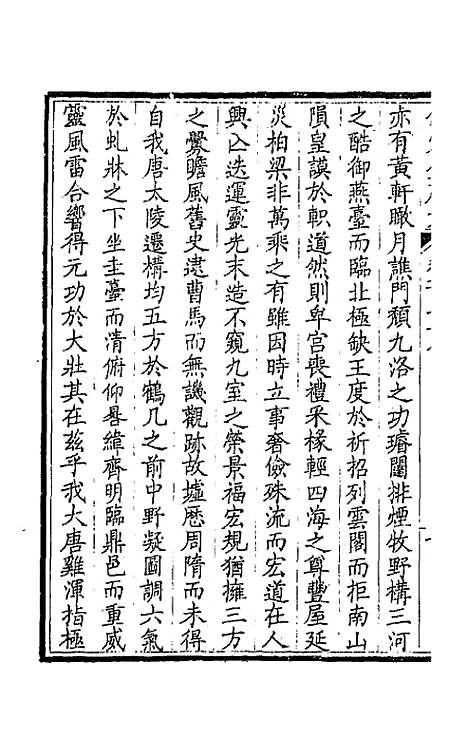 亦有黃軒瞰月譙門頹九洛之功璿闈排煙牧野構三河
之酷御燕臺而臨北極缺王度於祈招列雲閣而拒南山
隕皇謨於軹道然則卑宮喪禮采椽輕四海之尊豐屋延
災柏梁非萬乘之有雖因時立事奢儉殊流而宏道在人
興亾迭運靈光末造不窺九室之榮景福宏規猶擁三方
之舋瞻風舊史逮曹馬而無譏觀跡故墟歷周隋而未得
自我唐太陵遷構均五方於鶴几之前中野凝圖調六氣
於虬牀之下坐圭臺而清俯仰晷緯齊明臨鼎邑而重威
靈風雷合響得元功於大壯其在茲乎我大唐雞渾指極